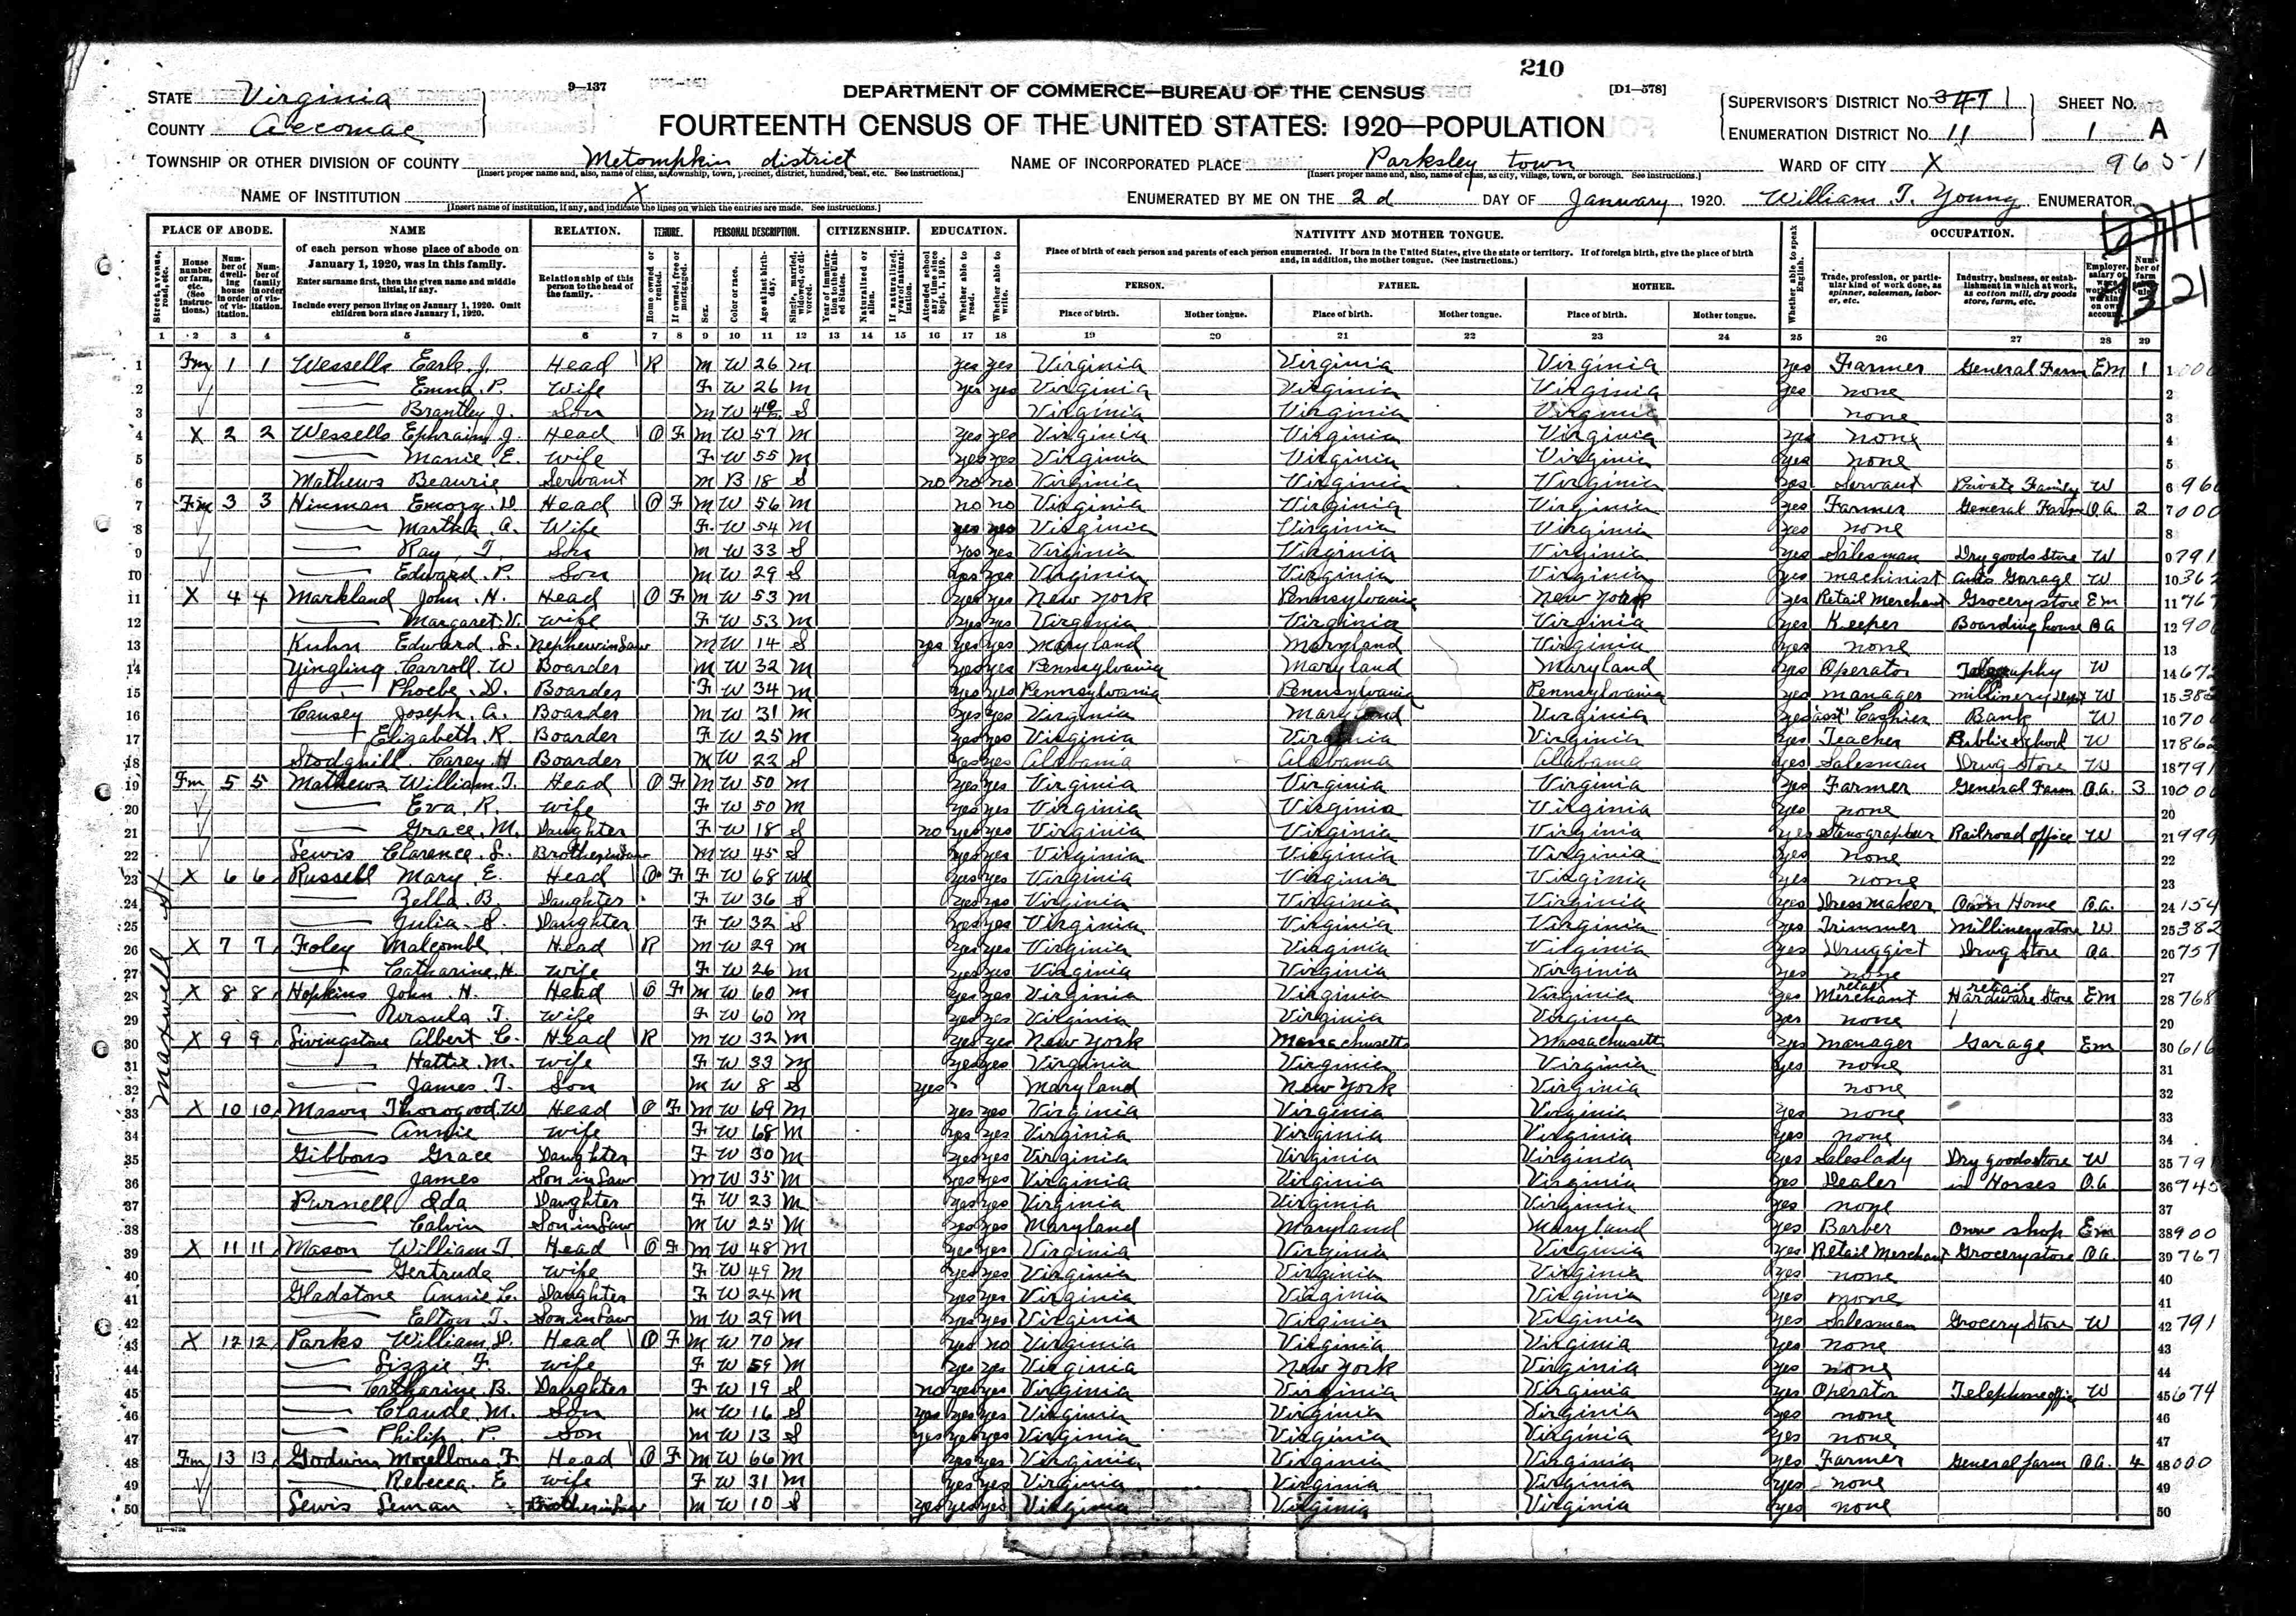 210
STATE Virginia
COUNTY Accomac
9—137
DEPARTMENT OF COMMERCE—BUREAU OF THE CENSUS
[D1—578]
FOURTEENTH CENSUS OF THE UNITED STATES: 1920—POPULATION
SUPERVISOR'S DISTRICT No. 1
ENUMERATION DISTRICT No. 11
SHEET No. 1 A
TOWNSHIP OR OTHER DIVISION OF COUNTY Metompkin district
[Insert proper name and, also, name of class, as township, town, precinct, district, hundred, beat, etc. See instructions.]
NAME OF INCORPORATED PLACE Parksley town
[Insert proper name and, also, name of class, as city, village, town, or borough. See instructions.]
WARD OF CITY X
NAME OF INSTITUTION X
[Insert name of institution, if any, and indicate the lines on which the entries are made. See instructions.]
ENUMERATED BY ME ON THE 2d DAY OF January, 1920. William T. Young ENUMERATOR.
PLACE OF ABODE. NAME RELATION. TENURE. PERSONAL DESCRIPTION. CITIZENSHIP. EDUCATION. NATIVITY AND MOTHER TONGUE. OCCUPATION.
of each person whose place of abode on January 1, 1920, was in this family.
Enter surname first, then the given name and middle initial, if any.
Include every person living on January 1, 1920. Omit children born since January 1, 1920.
Relationship of this person to the head of the family.
Place of birth of each person and parents of each person enumerated. If born in the United States, give the state or territory. If of foreign birth, give the place of birth and, in addition, the mother tongue. (See instructions.)
PERSON. FATHER. MOTHER.
Place of birth. Mother tongue. Place of birth. Mother tongue. Place of birth. Mother tongue.
1 2 3 4 5 6 7 8 9 10 11 12 13 14 15 16 17 18 19 20 21 22 23 24 25 26 27 28 29
1 Fm 1 1 Wessells Earle J. Head R M W 26 M yes yes Virginia Virginia Virginia yes Farmer General Farm Em 1
2 Emma P. Wife F W 26 M yes yes Virginia Virginia Virginia yes none
3 Brantley J. Son M W S Virginia Virginia Virginia none
4 X 2 2 Wessells Ephraim J. Head O F M W 57 M yes yes Virginia Virginia Virginia yes none
5 Manie E. Wife F W 55 M yes yes Virginia Virginia Virginia yes none
6 Mathews Servant M B 18 S no no no Virginia Virginia Virginia yes Servant Private Family W
7 Fm 3 3 Hinman Emory D. Head O F M W 56 M no no Virginia Virginia Virginia yes Farmer General Farm O.A. 2
8 Martha A. Wife F W 54 M yes yes Virginia Virginia Virginia yes none
9 Ray T. Son M W 33 S yes yes Virginia Virginia Virginia yes Salesman Dry goods Store W
10 Edward P. Son M W 29 S yes yes Virginia Virginia Virginia yes machinist Auto Garage W
11 X 4 4 Markland John H. Head O F M W 53 M yes yes New York Pennsylvania New York yes Retail Merchant Grocery store Em
12 Margaret V. Wife F W 53 M yes yes Virginia Virginia Virginia yes Keeper Boarding house OA
13 Kuhn Edward L. Nephew in Law M W 14 S yes yes yes Maryland Maryland Virginia yes none
14 Yingling Carroll W Boarder M W 32 M yes yes Pennsylvania Maryland Maryland yes Operator Telegraphy W
15 Phoebe D. Boarder F W 34 M yes yes Pennsylvania Pennsylvania Pennsylvania yes manager millinery W
16 Causey Joseph A. Boarder M W 31 M yes yes Virginia Maryland Virginia yes asst Cashier Bank W
17 Elizabeth R. Boarder F W 25 M yes yes Virginia Virginia Virginia yes Teacher Public School W
18 Stodghill Carey H Boarder M W 22 S yes yes Alabama Alabama Alabama yes Salesman Drug Store W
19 Fm 5 5 Mathews William T. Head O F M W 50 M yes yes Virginia Virginia Virginia yes Farmer General Farm O.A. 3
20 Eva R. Wife F W 50 M yes yes Virginia Virginia Virginia yes none
21 Grace M. Daughter F W 18 S no yes yes Virginia Virginia Virginia yes Stenographer Railroad office W
22 Lewis Clarence L. Brother in Law M W 45 S yes yes Virginia Virginia Virginia yes none
Maxwell St
23 X 6 6 Russell Mary E. Head O F F W 68 Wd yes yes Virginia Virginia Virginia yes none
24 Zella B. Daughter F W 36 S yes yes Virginia Virginia Virginia yes Dress maker Own Home O.A.
25 Julia S. Daughter F W 32 S yes yes Virginia Virginia Virginia yes Trimmer Millinery store W
26 X 7 7 Foley Malcombe Head R M W 29 M yes yes Virginia Virginia Virginia yes Druggist Drug Store O.A.
27 Catharine H. Wife F W 26 M yes yes Virginia Virginia Virginia yes none
28 X 8 8 Hopkins John H. Head O F M W 60 M yes yes Virginia Virginia Virginia yes retail Merchant retail Hardware Store Em
29 Ursula T. Wife F W 60 M yes yes Virginia Virginia Virginia yes none
30 X 9 9 Livingstone Albert C. Head R M W 32 M yes yes New York Massachusetts Massachusetts yes manager Garage Em
31 Hattie M. Wife F W 33 M yes yes Virginia Virginia Virginia yes none
32 James T. Son M W 8 S yes Maryland New York Virginia none
33 X 10 10 Mason Thorogood W Head O F M W 69 M yes yes Virginia Virginia Virginia yes none
34 Annie Wife F W 68 M yes yes Virginia Virginia Virginia yes none
35 Gibbons Grace Daughter F W 30 M yes yes Virginia Virginia Virginia yes Saleslady Dry goods store W
36 James Son in Law M W 35 M yes yes Virginia Virginia Virginia yes Dealer in Horses O.A
37 Purnell Ada Daughter F W 23 M yes yes Virginia Virginia Virginia yes none
38 Calvin Son in Law M W 25 M yes yes Maryland Maryland Maryland yes Barber Own shop Em
39 X 11 11 Mason William T. Head O F M W 48 M yes yes Virginia Virginia Virginia yes Retail Merchant Grocery store O.A.
40 Gertrude Wife F W 49 M yes yes Virginia Virginia Virginia yes none
41 Gladstone Annie L. Daughter F W 24 M yes yes Virginia Virginia Virginia yes none
42 Elton T. Son in Law M W 29 M yes yes Virginia Virginia Virginia yes Salesman Grocery Store W
43 X 12 12 Parks William D. Head O F M W 70 M yes no Virginia Virginia Virginia yes none
44 Lizzie F. Wife F W 59 M yes yes Virginia New York Virginia yes none
45 Catharine B. Daughter F W 19 S no yes yes Virginia Virginia Virginia yes Operator Telephone office W
46 Claude M. Son M W 16 S yes yes yes Virginia Virginia Virginia yes none
47 Philip P. Son M W 13 S yes yes yes Virginia Virginia Virginia yes none
48 Fm 13 13 Godwin F Head O F M W 66 M yes yes Virginia Virginia Virginia yes Farmer General farm O.A. 4
49 Rebecca E Wife F W 31 M yes yes Virginia Virginia Virginia yes none
50 Lewis Leman Brother in Law M W 10 S yes yes yes Virginia Virginia Virginia yes none